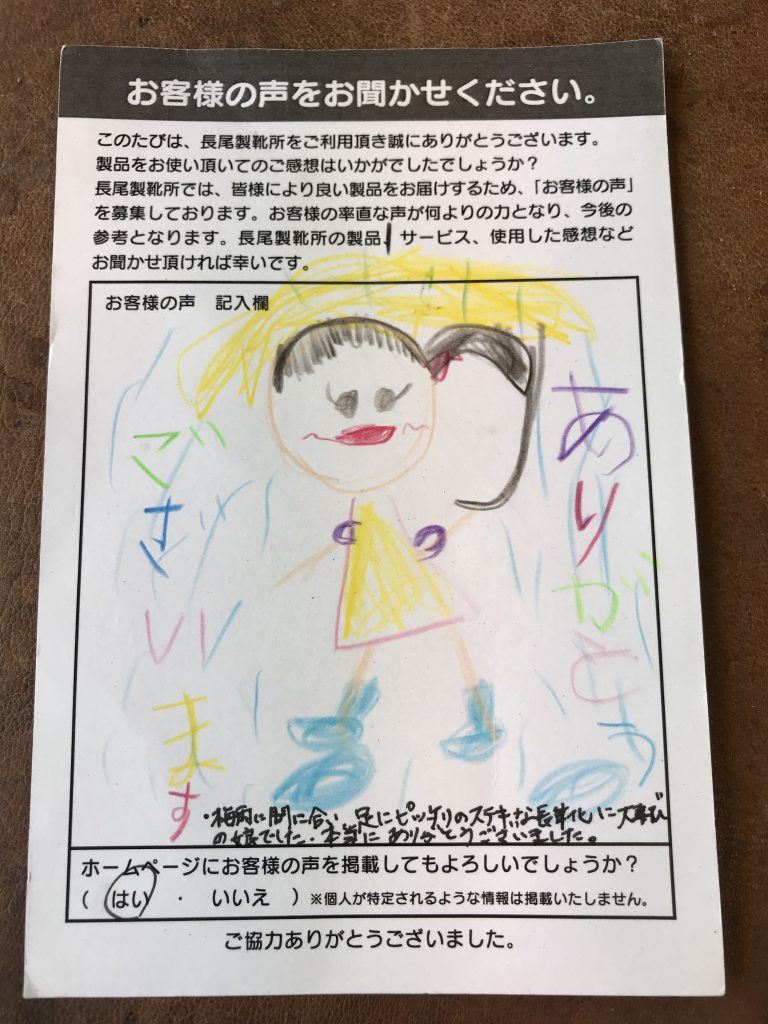 お客様の声をお聞かせください。
このたびは、長尾製靴所をご利用頂き誠にありがとうございます。
製品をお使い頂いてのご感想はいかがでしたでしょうか？
長尾製靴所では、皆様により良い製品をお届けするため、「お客様の声」
を募集しております。お客様の率直な声が何よりの力となり、今後の
参考となります。長尾製靴所の製品、サービス、使用した感想など
お聞かせ頂ければ幸いです。
お客様の声 記入欄
ありがとう
ございます
・梅雨に間に合い 足にピッタリのステキな長靴に大喜び
の娘でした。本当にありがとうございました。
ホームページにお客様の声を掲載してもよろしいでしょうか？
（ はい ・ いいえ ）※個人が特定されるような情報は掲載いたしません。
ご協力ありがとうございました。